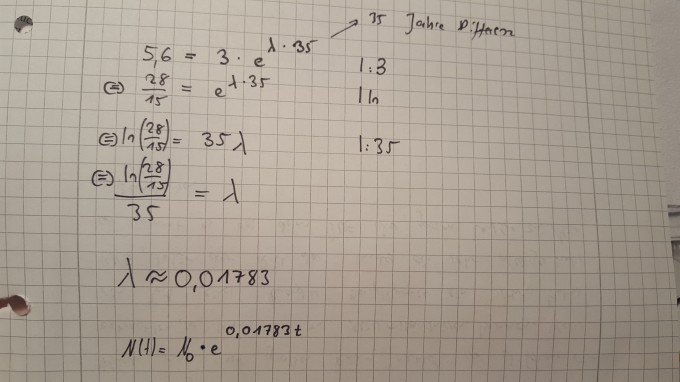 35 Jahre Differenz
5,6 = 3 · e^(λ·35) |:3
⇔ 28/15 = e^(λ·35) |ln
⇔ ln(28/15) = 35λ |:35
⇔ ln(28/15)/35 = λ
λ ≈ 0,01783
N(t) = N₀ · e^(0,01783t)